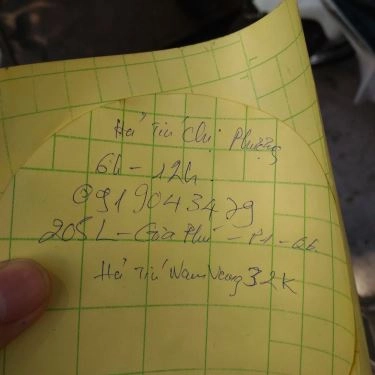 Hủ Tiú Chị Phượng
6h - 12h.
0919043479
205L - Gia Phú - P1 - Q6
Hủ Tiú Nam Vang 32K